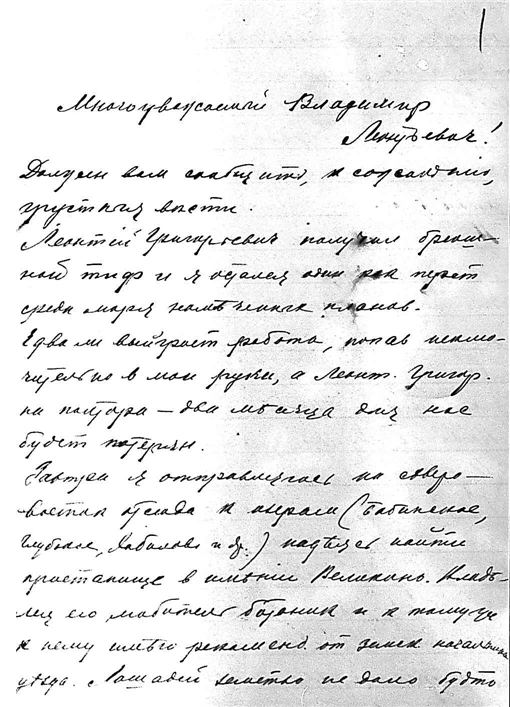 Многоуважаемый Владимир
Леонтьевич!
Должен вам сообщить, к сожалѣнію,
грустныя вѣсти.
Леонтій Григорьевич получил брюш-
ной тиф и я остался один как перст
среди моря намѣченных планов.
Едва ли выиграет работа, попав исклю-
чительно в мои руки, а Леонт. Григор.
на полтора — два мѣсяца для нас
будет потерян.
Завтра я отправляюсь на сѣверо-
восток отсюда к озерам (Бабинское,
Глубокое, Хаболово и др.) надѣюсь найти
пристанище в имѣніи Великино. Владѣ-
лец его любитель ботаник и к тому же
к нему имѣю рекоменд. от земск. начальника
уѣзда. Лошадей земство не дало будто